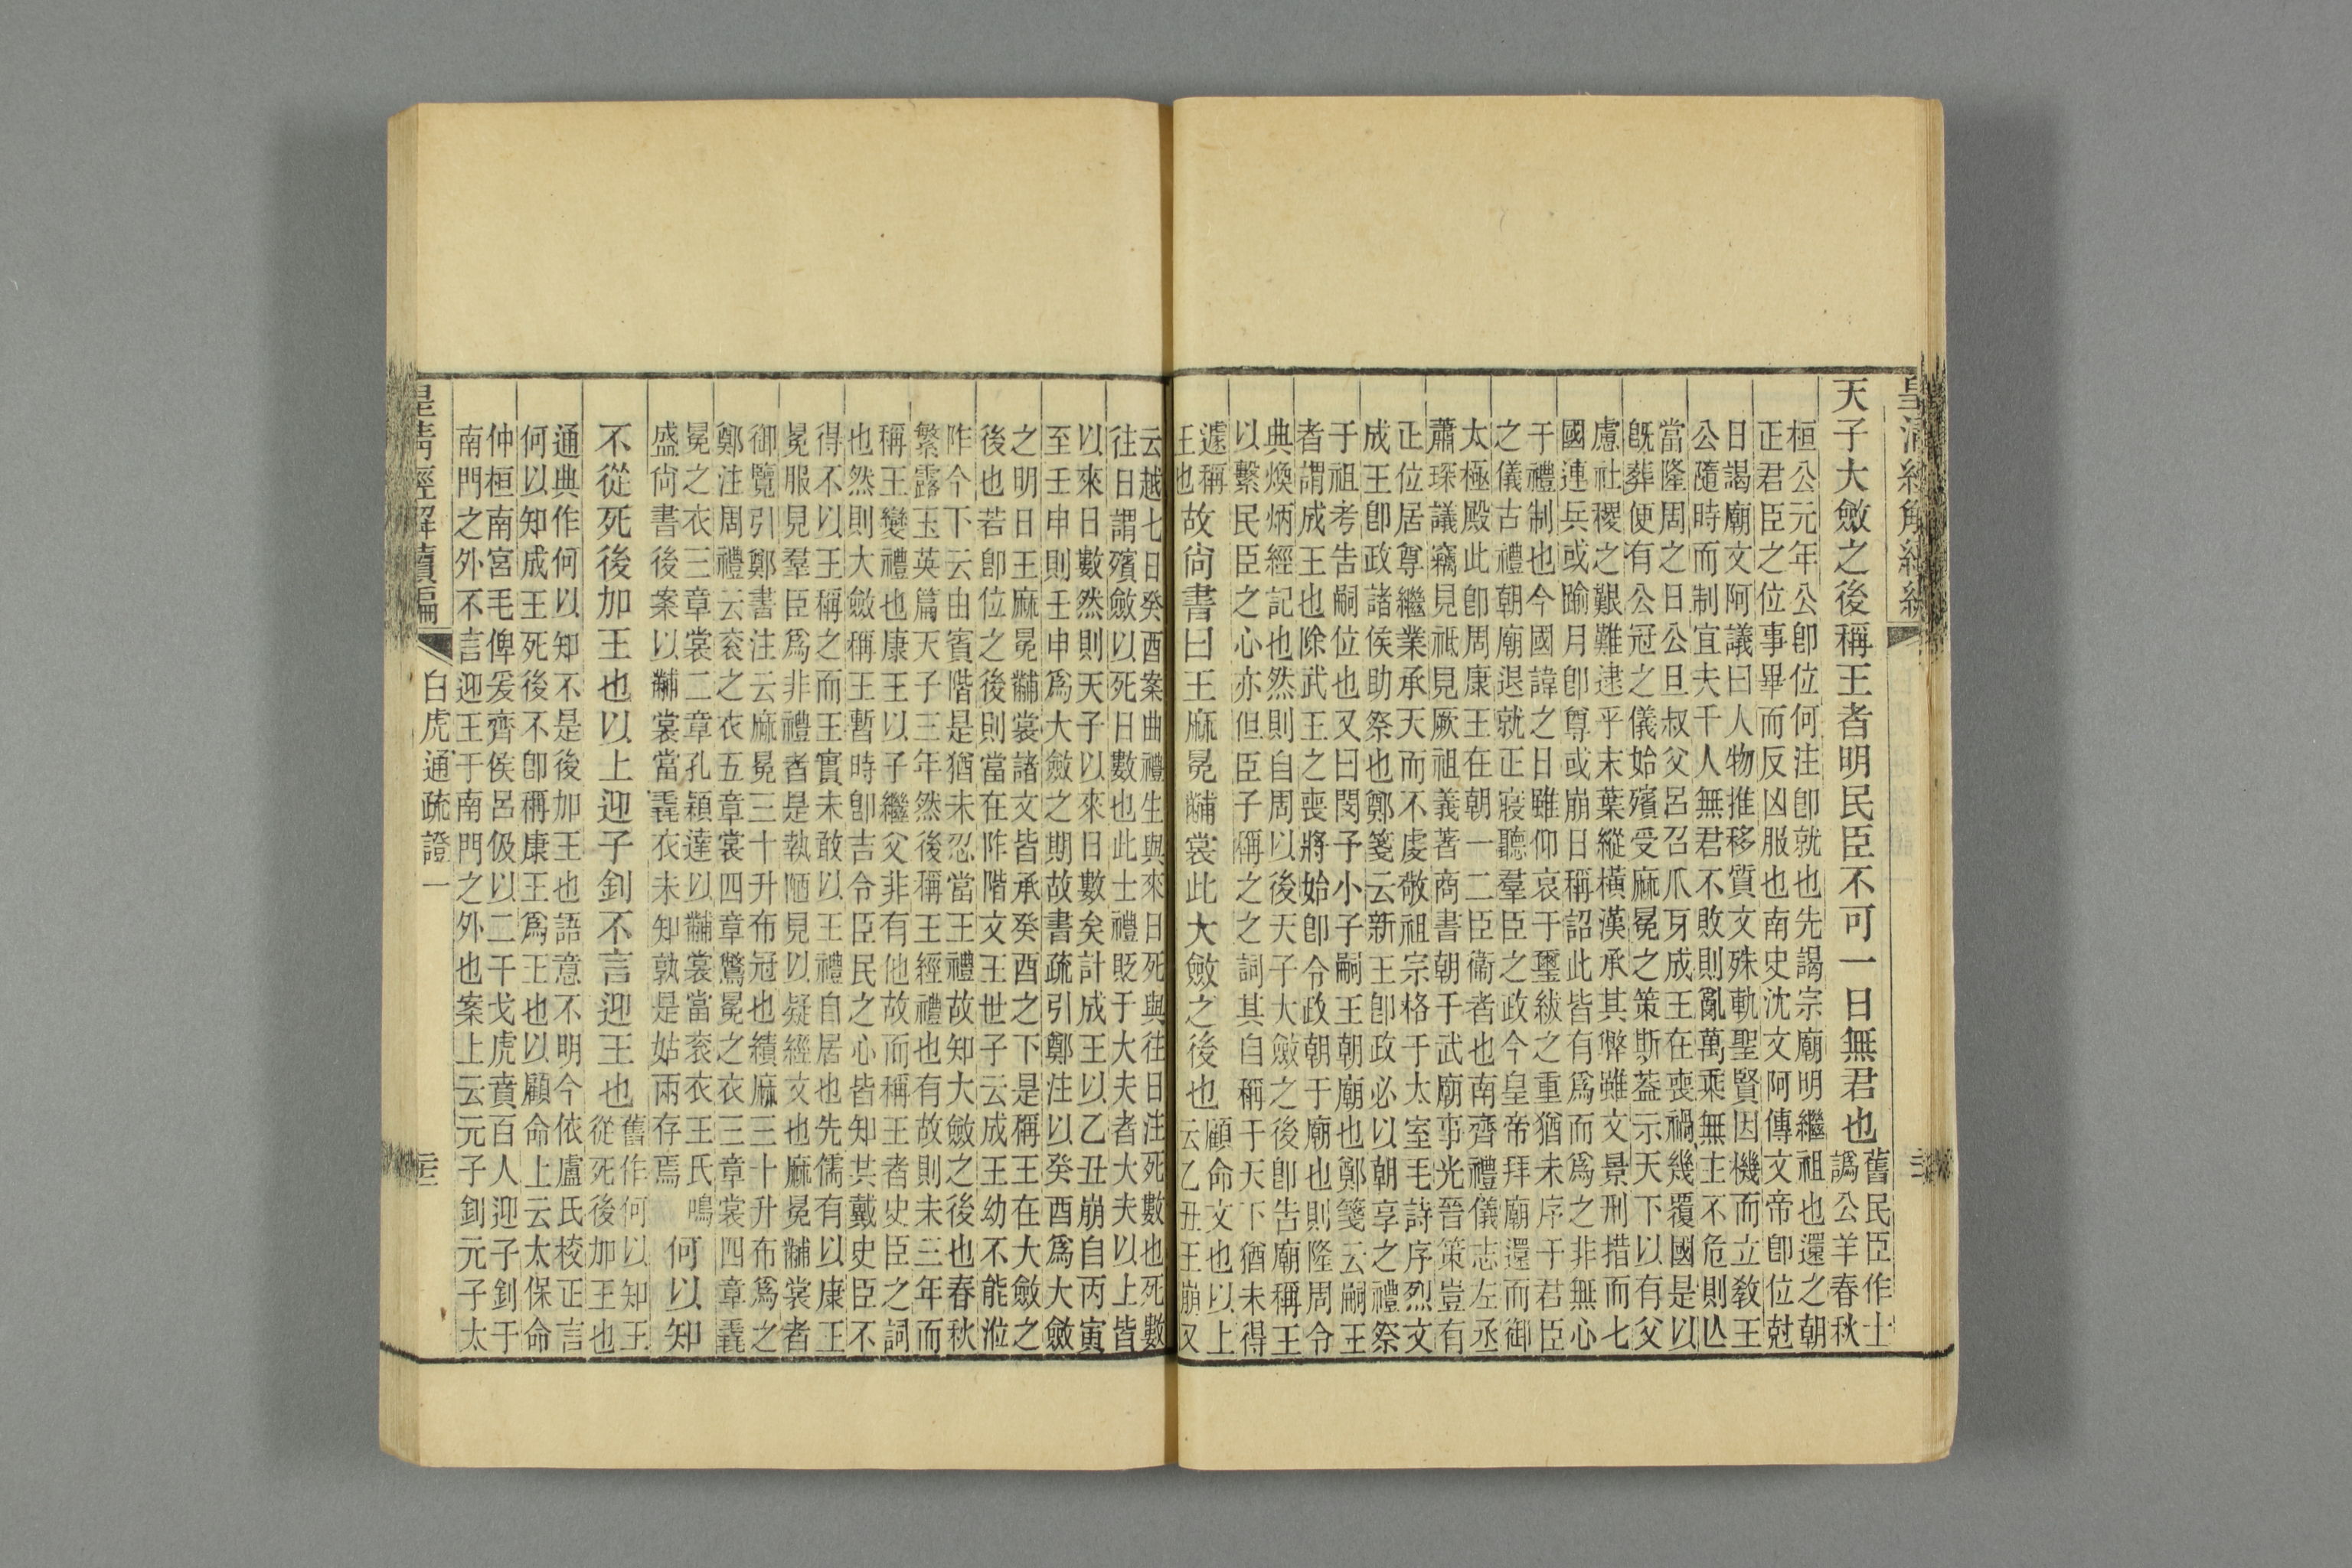 皇清經解續編
天子大斂之後稱王者明民臣不可一日無君也
舊民臣作士
譌公羊春秋
桓公元年公卽位何注卽就也先謁宗廟明繼祖也還之朝
正君臣之位事畢而反凶服也南史沈文阿傳文帝卽位尅
日謁廟文阿議曰人物推移質文殊軌聖賢因機而立敎王
公隨時而制宜夫千人無君不敗則亂萬乘無主不危則亾
當隆周之日公旦叔父呂召爪牙成王在喪禍幾覆國是以
旣葬便有公冠之儀始殯受麻冕之策斯葢示天下以有父
慮社稷之艱難逮乎末葉縱橫漢承其弊雖文景刑措而七
國連兵或踰月卽尊或崩日稱詔此皆有爲而爲之非無心
于禮制也今國諱之日雖仰哀于璽紱之重猶未序于君臣
之儀古禮朝廟退就正寢聽羣臣之政今皇帝拜廟還而御
太極殿此卽周康王在朝一二臣衞者也南齊禮儀志左丞
蕭琛議竊見祗見厥祖義著商書朝于武廟事光晉策豈有
正位居尊繼業承天而不虔敬祖宗格于太室毛詩序烈文
成王卽政諸侯助祭也鄭箋云新王卽政必以朝享之禮祭
于祖考告嗣位也又曰閔予小子嗣王朝廟也鄭箋云嗣王
者謂成王也除武王之喪將始卽令政朝于廟也則隆周令
典煥炳經記也然則自周以後天子大斂之後卽告廟稱王
以繫民臣之心亦但臣子稱之之詞其自稱于天下猶未得
遽稱
王也
故尙書曰王麻冕黼裳此大斂之後也
顧命文也以上
云乙丑王崩又
云越七日癸酉案曲禮生與來日死與往日注死數也死數
往日謂殯斂以死日數也此士禮貶于大夫者大夫以上皆
以來日數然則天子以來日數矣計成王以乙丑崩自丙寅
至壬申則壬申爲大斂之期故書疏引鄭注以癸酉爲大斂
之明日王麻冕黼裳諸文皆承癸酉之下是稱王在大斂之
後也若卽位之後則當在阼階文王世子云成王幼不能涖
阼今下云由賓階是猶未忍當王禮故知大斂之後也春秋
繁露玉英篇天子三年然後稱王經禮也有故則未三年而
稱王變禮也康王以子繼父非有他故而稱王者史臣之詞
也然則大斂稱王暫時卽吉令臣民之心皆知其戴史臣不
得不以王稱之而王實未敢以王禮自居也先儒有以康王
冕服見羣臣爲非禮者是執陋見以疑經文也麻冕黼裳者
御覽引鄭書注云麻冕三十升布冠也績麻三十升布爲之
鄭注周禮云衮之衣五章裳四章鷩冕之衣三章裳四章毳
冕之衣三章裳二章孔穎達以黼裳當衮衣王氏鳴
盛尙書後案以黼裳當毳衣未知孰是姑兩存焉
何以知
不從死後加王也以上迎子釗不言迎王也
舊作何以知王
從死後加王也
通典作何以知不是後加王也語意不明今依盧氏校正言
何以知成王死後不卽稱康王爲王也以顧命上云太保命
仲桓南宮毛俾爰齊侯呂伋以二干戈虎賁百人迎子釗于
南門之外不言迎王于南門之外也案上云元子釗元子太
皇清經解續編
白虎通疏證一